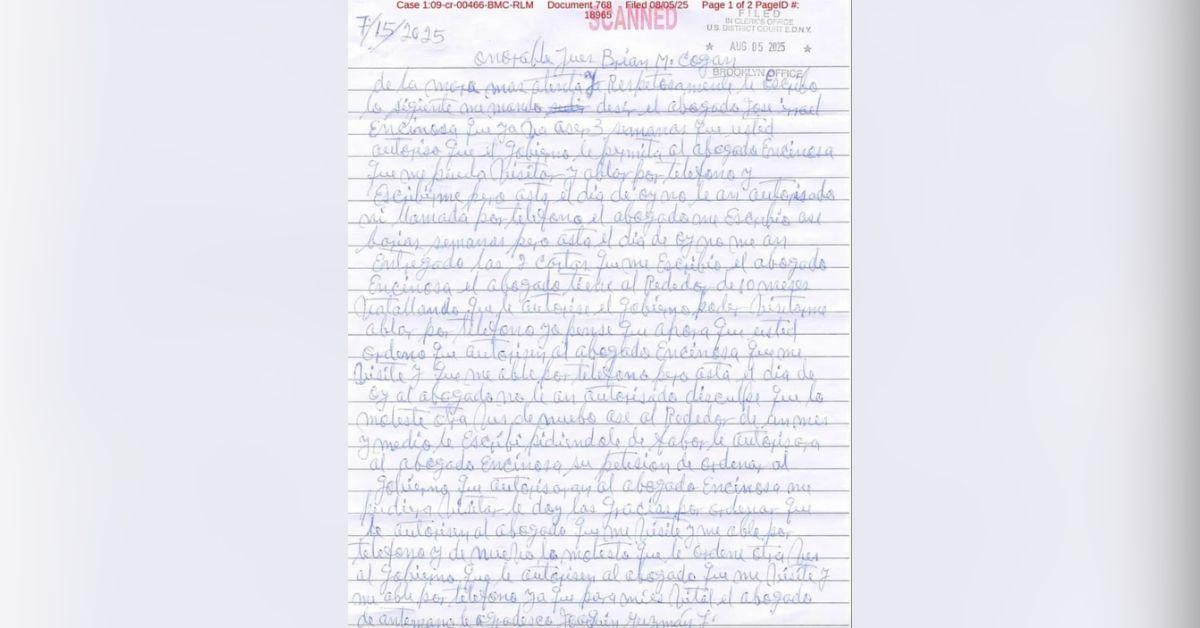 Case 1:09-cr-00466-BMC-RLM Document 768 Filed 08/05/25 Page 1 of 2 PageID #:
18965
SCANNED
FILED
IN CLERK'S OFFICE
U.S. DISTRICT COURT E.D.N.Y.
★ AUG 05 2025 ★
BROOKLYN OFFICE
7/15/2025
onorable Jues Brian M. Cogan
de la mera mas atenta y Respetosamente le escribo
lo sigiente me mando desir el abogado Jose
Encinosa que ya ba aser 3 semanas que usted
autoriso que el gobierno le permita al abogado Encinosa
que me pueda Visitar y ablar por telefono y
Escribirme pero asta el dia de oy no le an autorisado
ni llamada por telefono el abogado me Escribio ase
barias semanas pero asta el dia de oy no me an
Entregado las 2 cartas que me Escribio el abogado
Encinosa el abogado tiene al Rededor de 10 meses
batallando que le autorise el gobierno poder Visitarme
ablar por telefono ya pense que ahora que usted
ordeno que autorisen al abogado Encinosa que me
Visite y que me able por telefono pero asta el dia de
oy al abogado no le an autorisado disculpe que lo
moleste otra bes de nuebo ase al Rededor de un mes
y medio le Escribi pidiendole de fabor le autorisara
al abogado Encinosa su petision de ordenar al
gobierno que autorisaran al abogado Encinosa me
pudiera Visitar le doy las gracias por ordenar que
le autorisen al abogado que me Visite y me able por
telefono y de nuebo lo molesto que le ordene otra bes
al gobierno que le autorisen al abogado que me Visite y
me able por telefono ya que para mi es Vital el abogado
de antemano le agradesco Joaquin Guzman L.